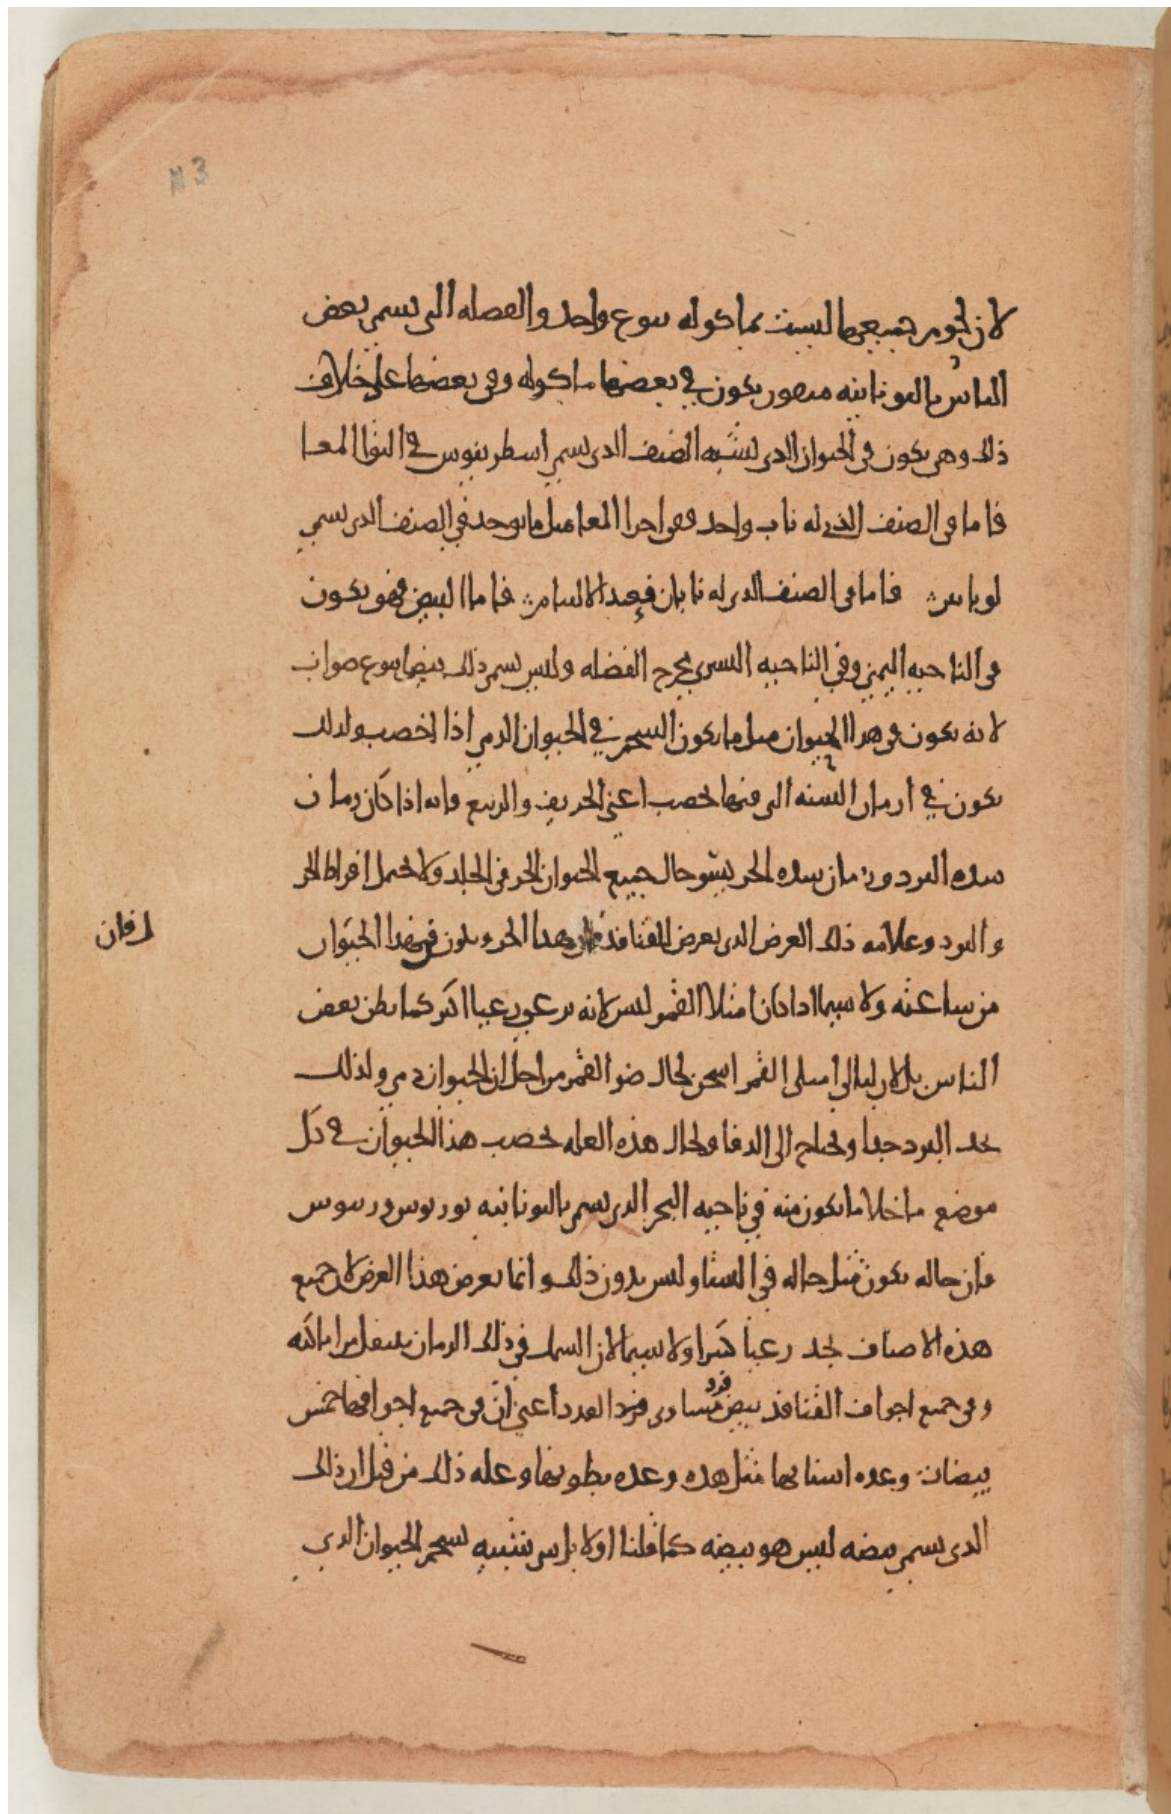 لان لحوم جميعها ليست بماكوله بنوع واحد والفصله التي يسمي بعض
الناس باليونانيه ميقون يكون في بعضها ماكوله وفي بعضها علي خلاف
ذلك وهي يكون في الحيوان الذي يشبه الصنف الذي يسمي اسطرنبوس في التوا المعا
فاما في الصنف الذي له ناب واحد ففي اجزا المعا مثل ما يوجد في الصنف الذي يسمي
لوباس فاما في الصنف الذي له نابان فعند الالتيام فاما البيض فهو يكون
في الناحيه اليمني وفي الناحيه اليسري يخرج الفضله وليس يسمي ذلك بيضا بنوع صواب
لانه يكون في هذا الحيوان مثل ما يكون الشحم في الحيوان الدمي اذا اخصب ولذلك
يكون في ازمان السنه التي فيها يخصب اعني الخريف والربيع فانه اذا كان زمان
شده البرد وزمان شده الحر يسو حال جميع الحيوان الخزفي الجلد ولا يحتمل افراط الحر
والبرد وعلامه ذلك العرض الذي يعرض للقنافذ هذا الحر ويكون في هذا الحيوان
لرفان
من ساعته ولا سيما اذا كان امتلا القمر ليس لانه يرعي رعيا اكثر كما يظن بعض
الناس بل لان ليالي امتلي القمر اسخن لحال ضو القمر من اجل ان الحيوان دمي ولذلك
يجد البرد جدا ويحتاج الي الدفا ولحال هذه العله يخصب هذا الحيوان في كل
موضع ما خلا ما يكون منه في ناحيه البحر الذي يسمي باليونانيه
فان حاله يكون مثل حاله في الشتا وليس بدون ذلك وانما يعرض هذا العرض لان جميع
هذه الاصناف يجد رعيا كثيرا ولا سيما لان السمك في ذلك الزمان ينتقل من اماكنه
وفي جميع اجواف القنافذ بيض متساوي فرد فرد العدد اعني ان في جميع اجوافها خمس
بيضات وعده اسنانها مثل هذه وعده بطونها وعله ذلك من قبل ان ذلك
الذي يسمي بيضه ليس هو بيضه كما قلنا اولا بل شي شبيه بشحم الحيوان الذي